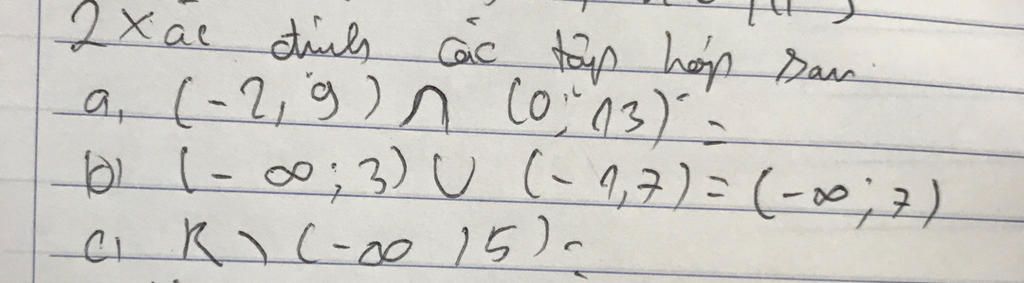 2 Xác định các tập hợp sau
a, (-2, 9) ∩ (0; 13) =
b) (- ∞; 3) ∪ (- 1, 7) = (-∞; 7)
c, R \ (-∞ ; 5) =